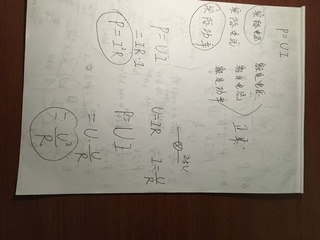 P=UI
实际电压 额定电压
实际电流 额定电流 正常
实际功率 额定功率
25V
P=UI
=IR·I
P=I²R
U=IR I=U/R
P=UI
=U·U/R
=U²/R